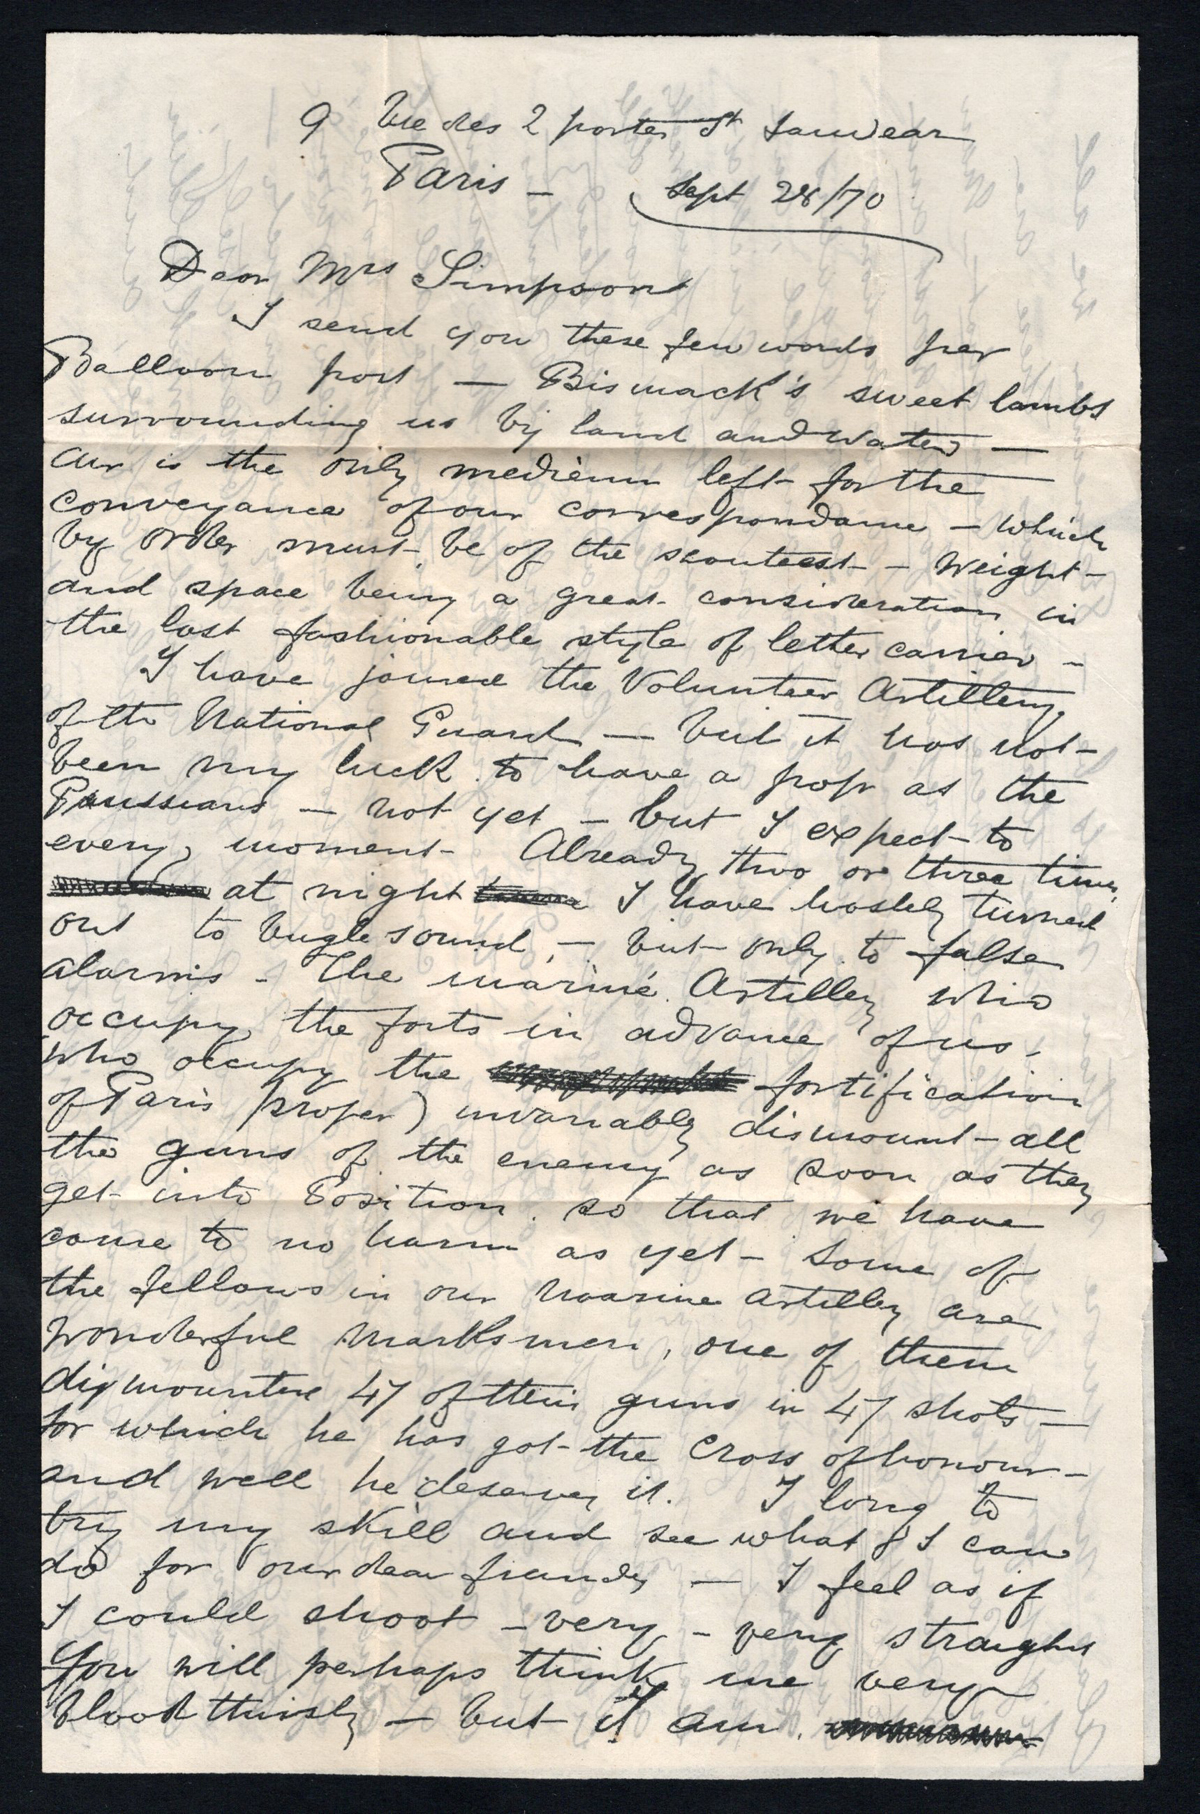 9 Rue des 2 portes St Sauveur
Paris — Sept 28/70
Dear Mrs Simpson
I send you these few words per
Balloon post — Bismack's sweet lambs
surrounding us by land and water —
air is the only medium left for the
conveyance of our correspondance — which
by order must be of the scantest — Weight —
and space being a great consideration in
the last fashionable style of letter carrier —
I have joined the Volunteer Artillery
of the National Guard — but it has not —
been my luck to have a pop at the
Prussians — not yet — but I expect to
every moment — Already two or three times
at night I have hastely turned
out to bugle sound — but only to false
alarms — The marine Artillery who
occupy the forts in advance of us
who occupy the fortification
of Paris proper) invariably dismount — all
the guns of the enemy as soon as they
get into Position so that we have
come to no harm as yet — Some of
the fellows in our Marine Artillery are
wonderful marksmen, one of them
dismounted 47 of their guns in 47 shots —
for which he has got the Cross of honour —
and well he deserves it. I long to
try my skill and see what I can
do for our dear friends — I feel as if
I could shoot — very — very straight
You will perhaps think me very
bloodthirsty — but I am.